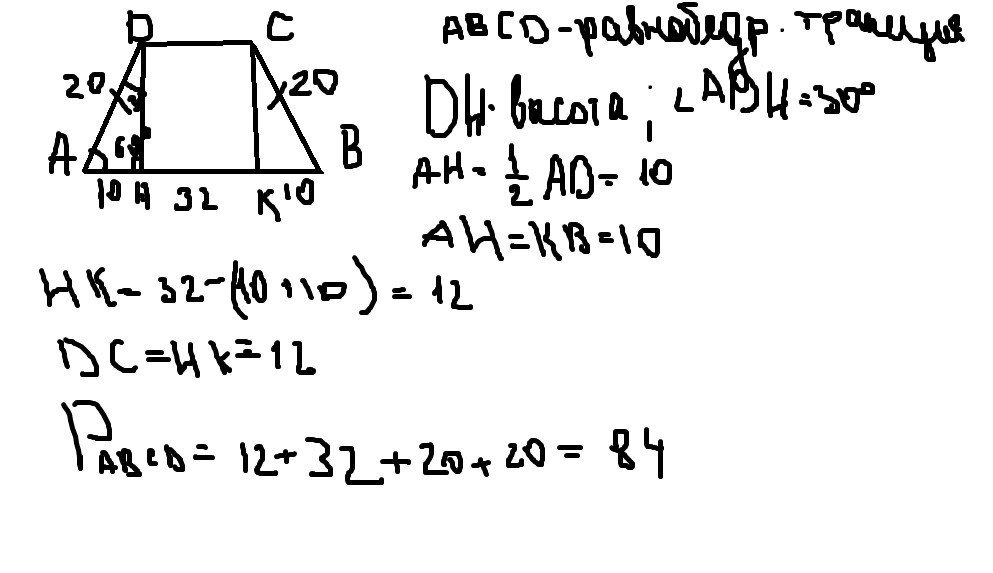 D C
20 20
A 60° B
10 H 32 K 10
ABCD-равнобедр. трапеция
DH-высота; ∠ADH=30°
AH=1/2 AD=10
AH=KB=10
HK=32-(10+10)=12
DC=HK=12
P ABCD=12+32+20+20=84